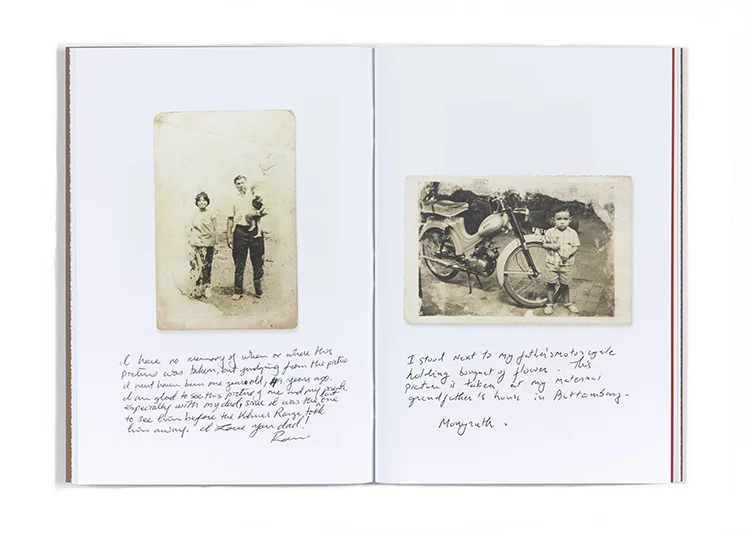 I have no memory of when or where this
picture was taken, but judging from the picture
I must have been one year old, 49 years ago.
I am glad to see this picture of me and my parents,
especially with my dad, since I was the last one
to see him before the Khmer Rouge took
him away. I Love you dad!
I stood next to my father's motorcycle
holding bouquet of flower. This
picture is taken at my maternal
grandfather's house in Battambang.
Monyrath.